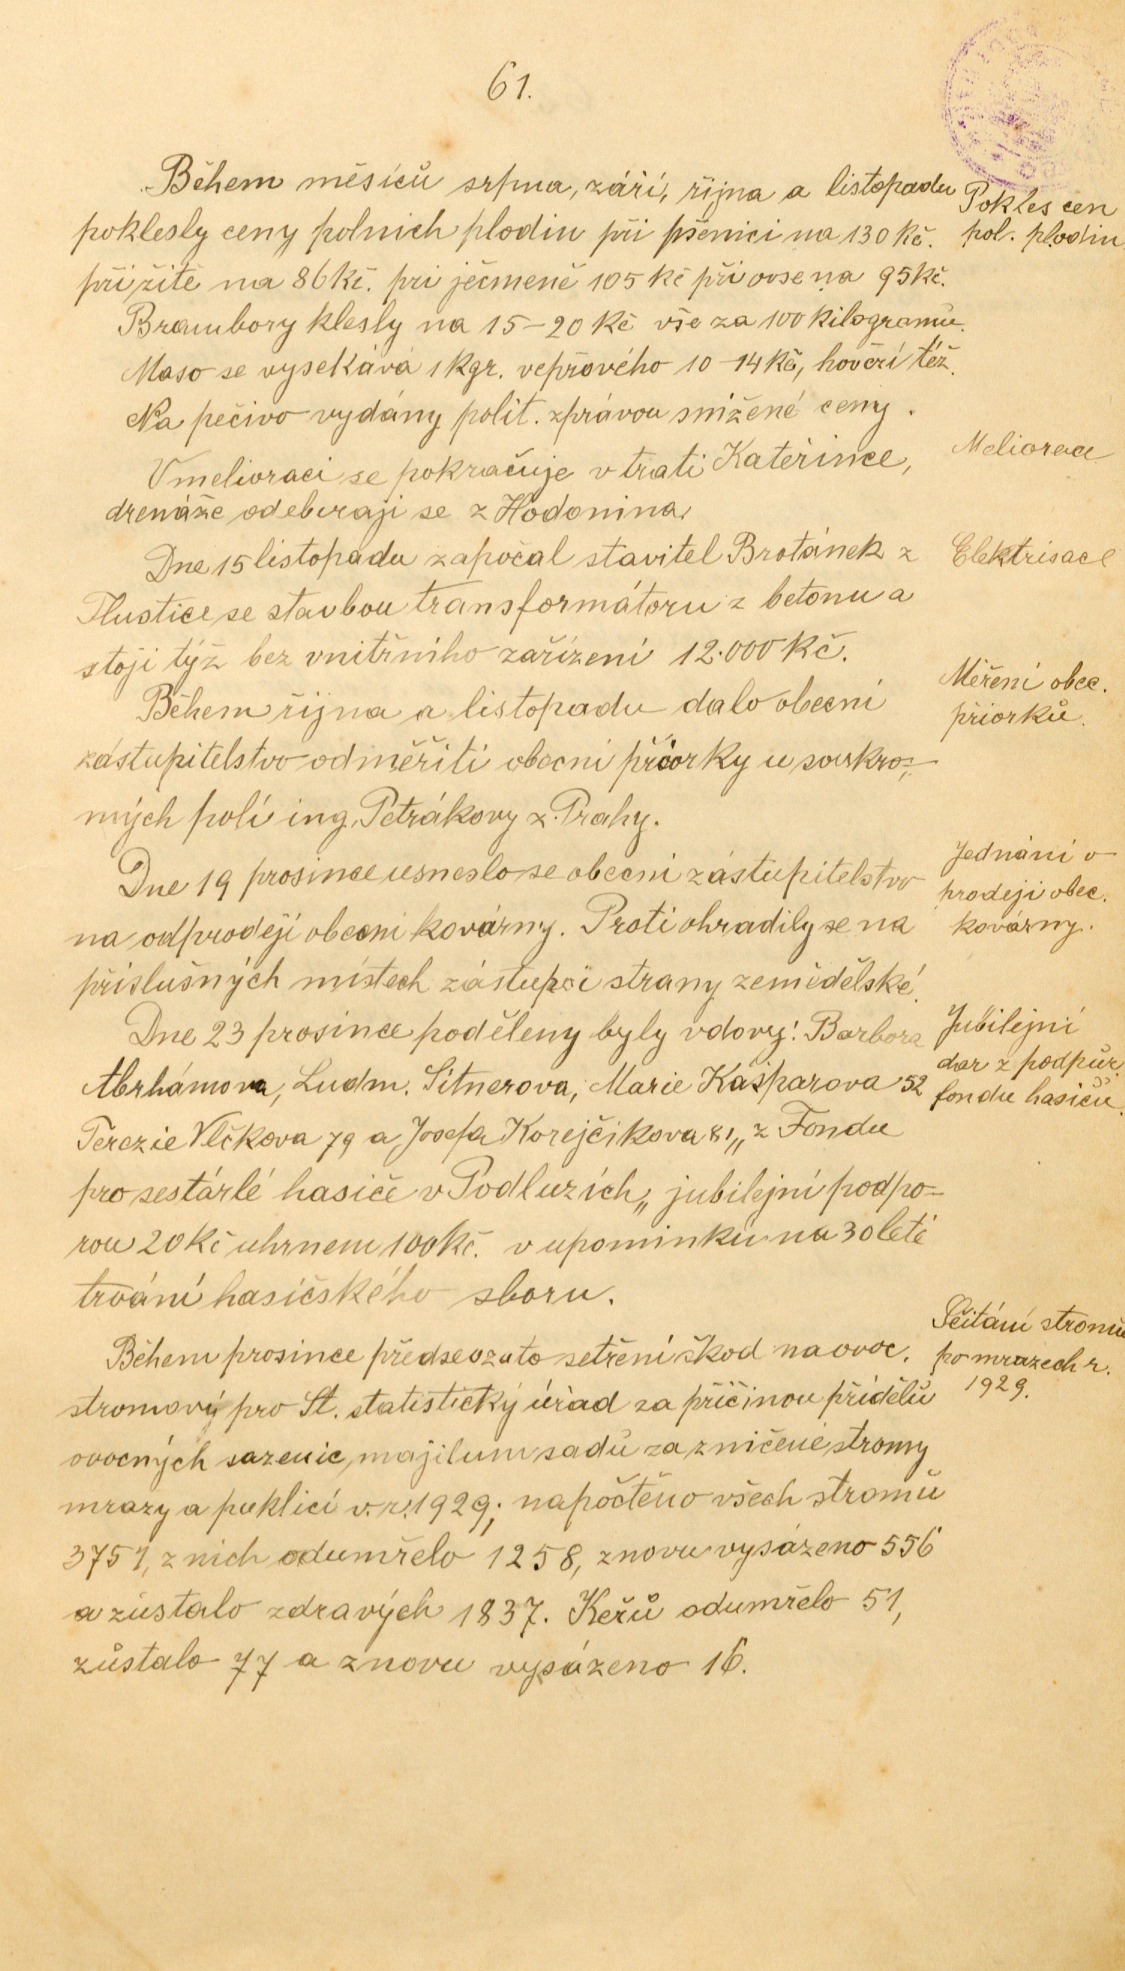 61.
Během měsíců srpna, září, října a listopadu
Pokles cen
poklesly ceny polnich plodin při pšenici na 130 Kč.
pol. plodin
při žitě na 86 Kč. pri ječmeně 105 Kč při ovse na 95 Kč.
Brambory klesly na 15–20 Kč vše za 100 kilogramů.
Maso se vysekává 1 kgr. vepřového 10–14 Kč, hovězí též.
Na pečivo vydány polit. zprávou snížené ceny.
Meliorace
V melioraci se pokračuje v trati Kateřince,
drenáže odebiraji se z Hodonina,
Dne 15 listopadu započal stavitel Brotánek z
Elektrisace
Tlustice se stavbou transformátoru z betonu a
stoji týž bez vnitřního zařízení 12.000 Kč.
Měření obec.
příorků.
Během října a listopadu dalo obecní
zástupitelstvo odměřiti obecni příorky u soukro-
mých polí ing. Petrákovy z Prahy.
Jednání o
prodeji obec.
kovárny.
Dne 19 prosince usneslo se obecni zástupitelstvo
na odprodeji obecni kovárny. Proti ohradily se na
příslušných místech zástupci strany zemědělské.
Jubilejní
dar z podpůr.
fondu hasičů.
Dne 23 prosince poděleny byly vdovy: Barbora
Abrhámova, Ludm. Sitnerova, Marie Kašparova 52
Terezie Vlčkova 79 a Josefa Korejčikova 81 „z Fondu
pro sestárlé hasiče v Podluzích„ jubilejní podpo-
rou 20 Kč uhrnem 100 Kč. v upominku na 30 leté
trvání hasičského sboru.
Sčitání stromů
po mrazech r.
1929.
Během prosince předsevzato setření škod na ovoc.
stromový pro St. statistický úřad za příčinou přídělů
ovocných sazenic, majilum sadů za zničené stromy
mrazy a puklicí v. r. 1929; napočteno všech stromů
3751, z nich odumřelo 1258, znovu vysázeno 556
a zůstalo zdravých 1837. Keřů odumřelo 51,
zůstalo 77 a znovu vysázeno 16.